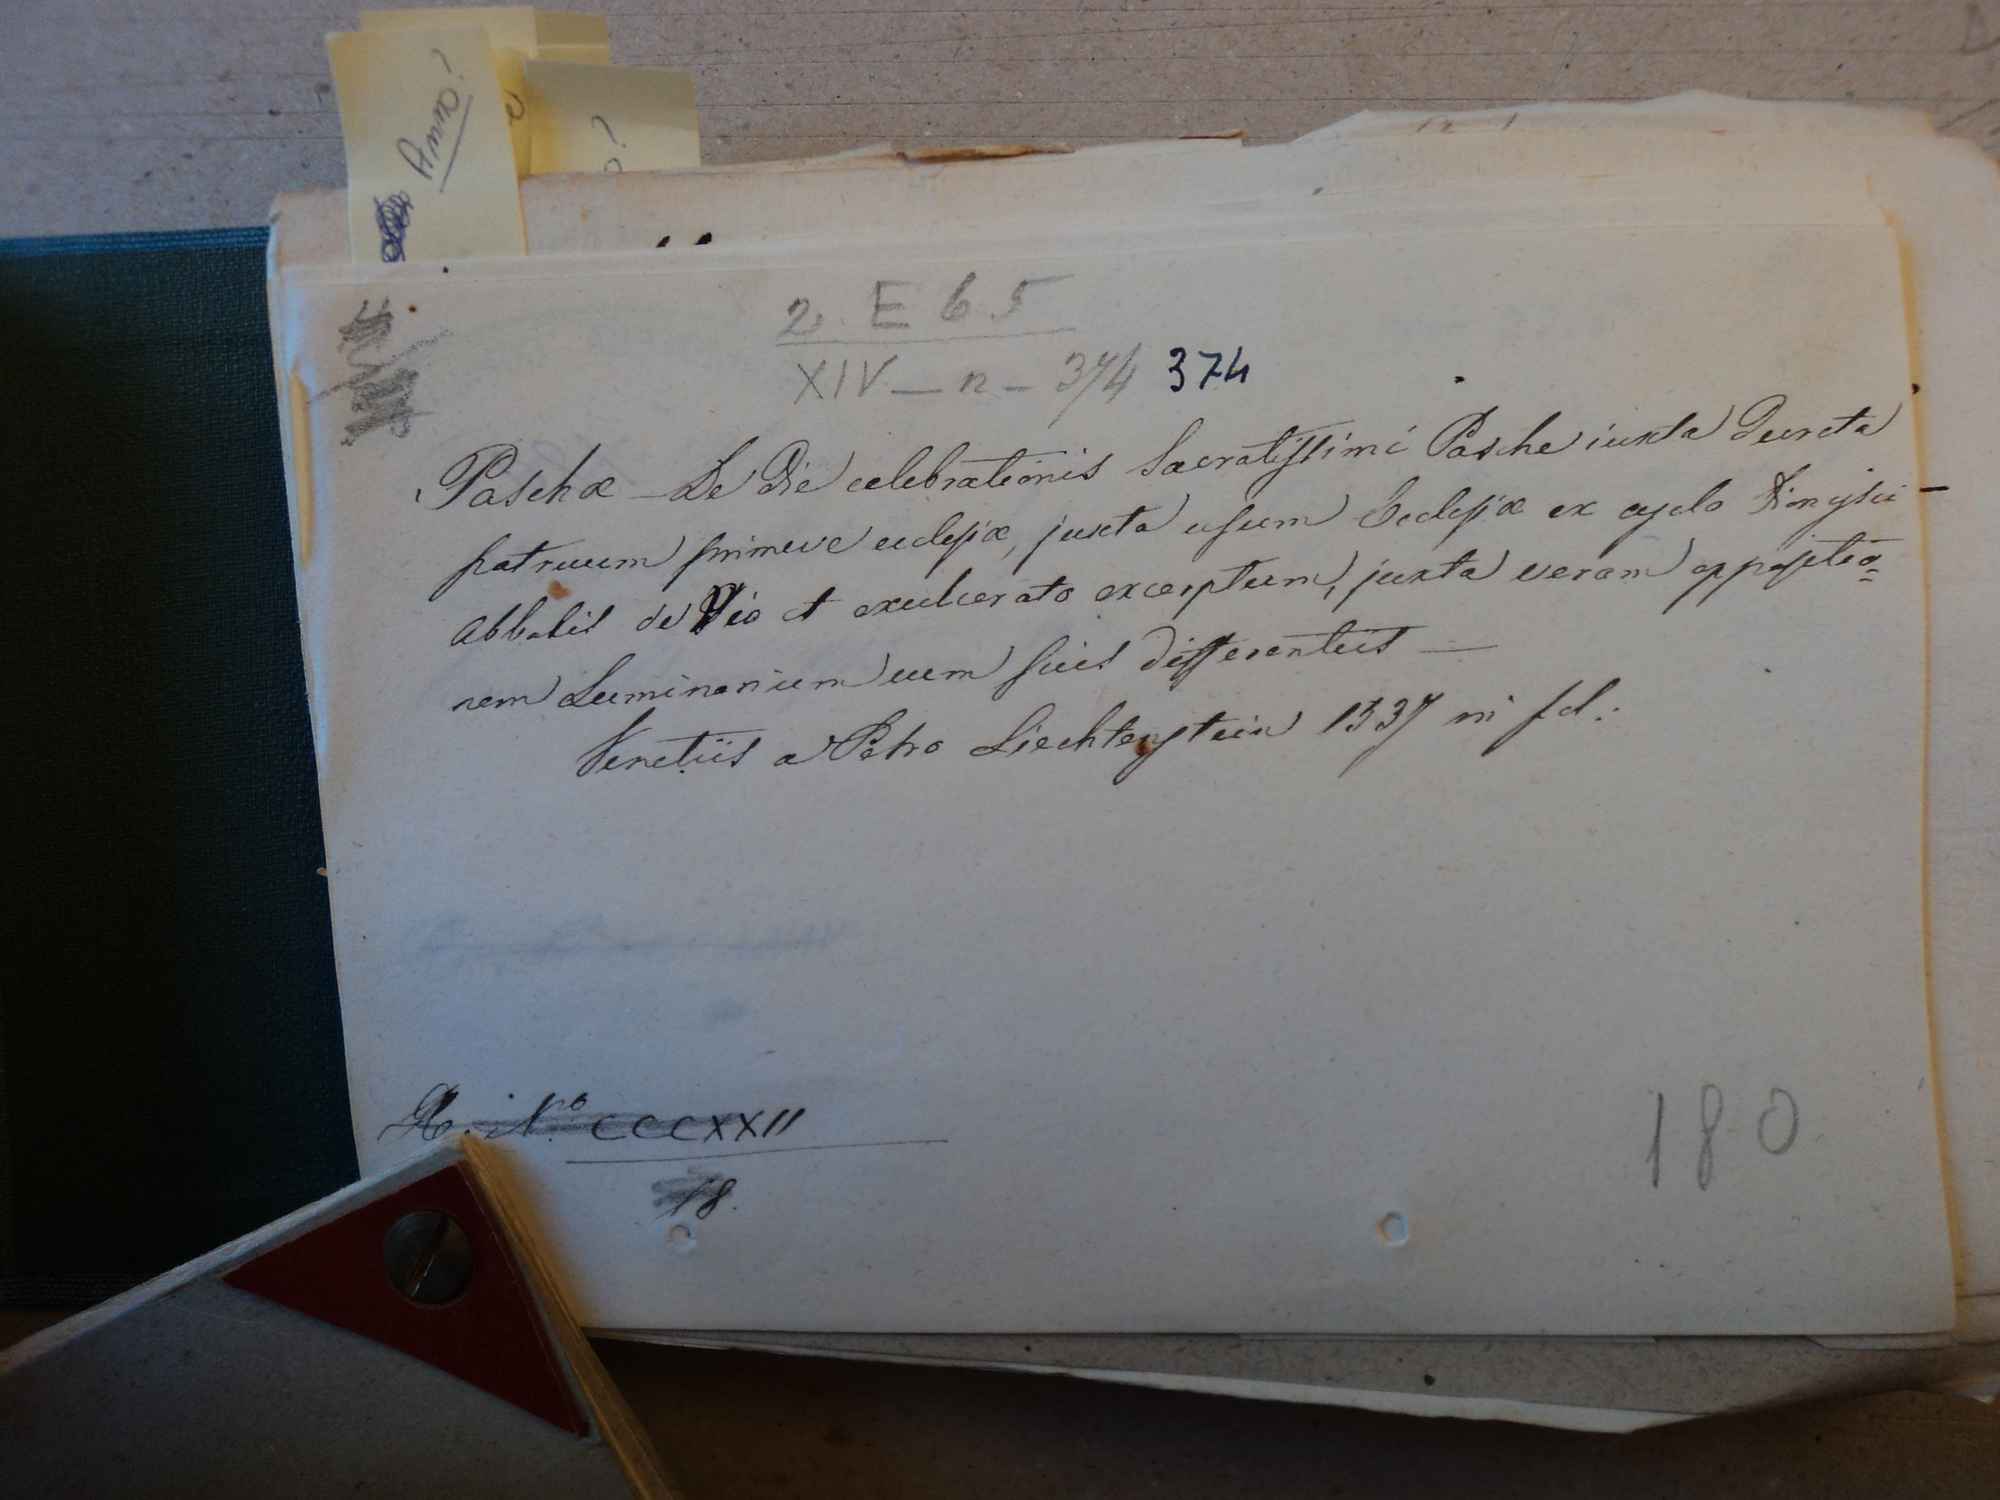 Anno?
o?
2. E 65
XIV - n - 374 374
Paschæ - De Die celebrationis Sacratissimi Pasche iuxta Decreta
patruum primeve eclesiæ, juxta usum Ecclesiæ ex cyclo Dionysii
Abbatis de Vio et exulcerato excerptum, juxta veram oppositio=
nem Luminarium cum suis differentiis —
Venetiis a Petro Liechtenstein 1537 in fol:
R. No. CCCXXII
18.
180